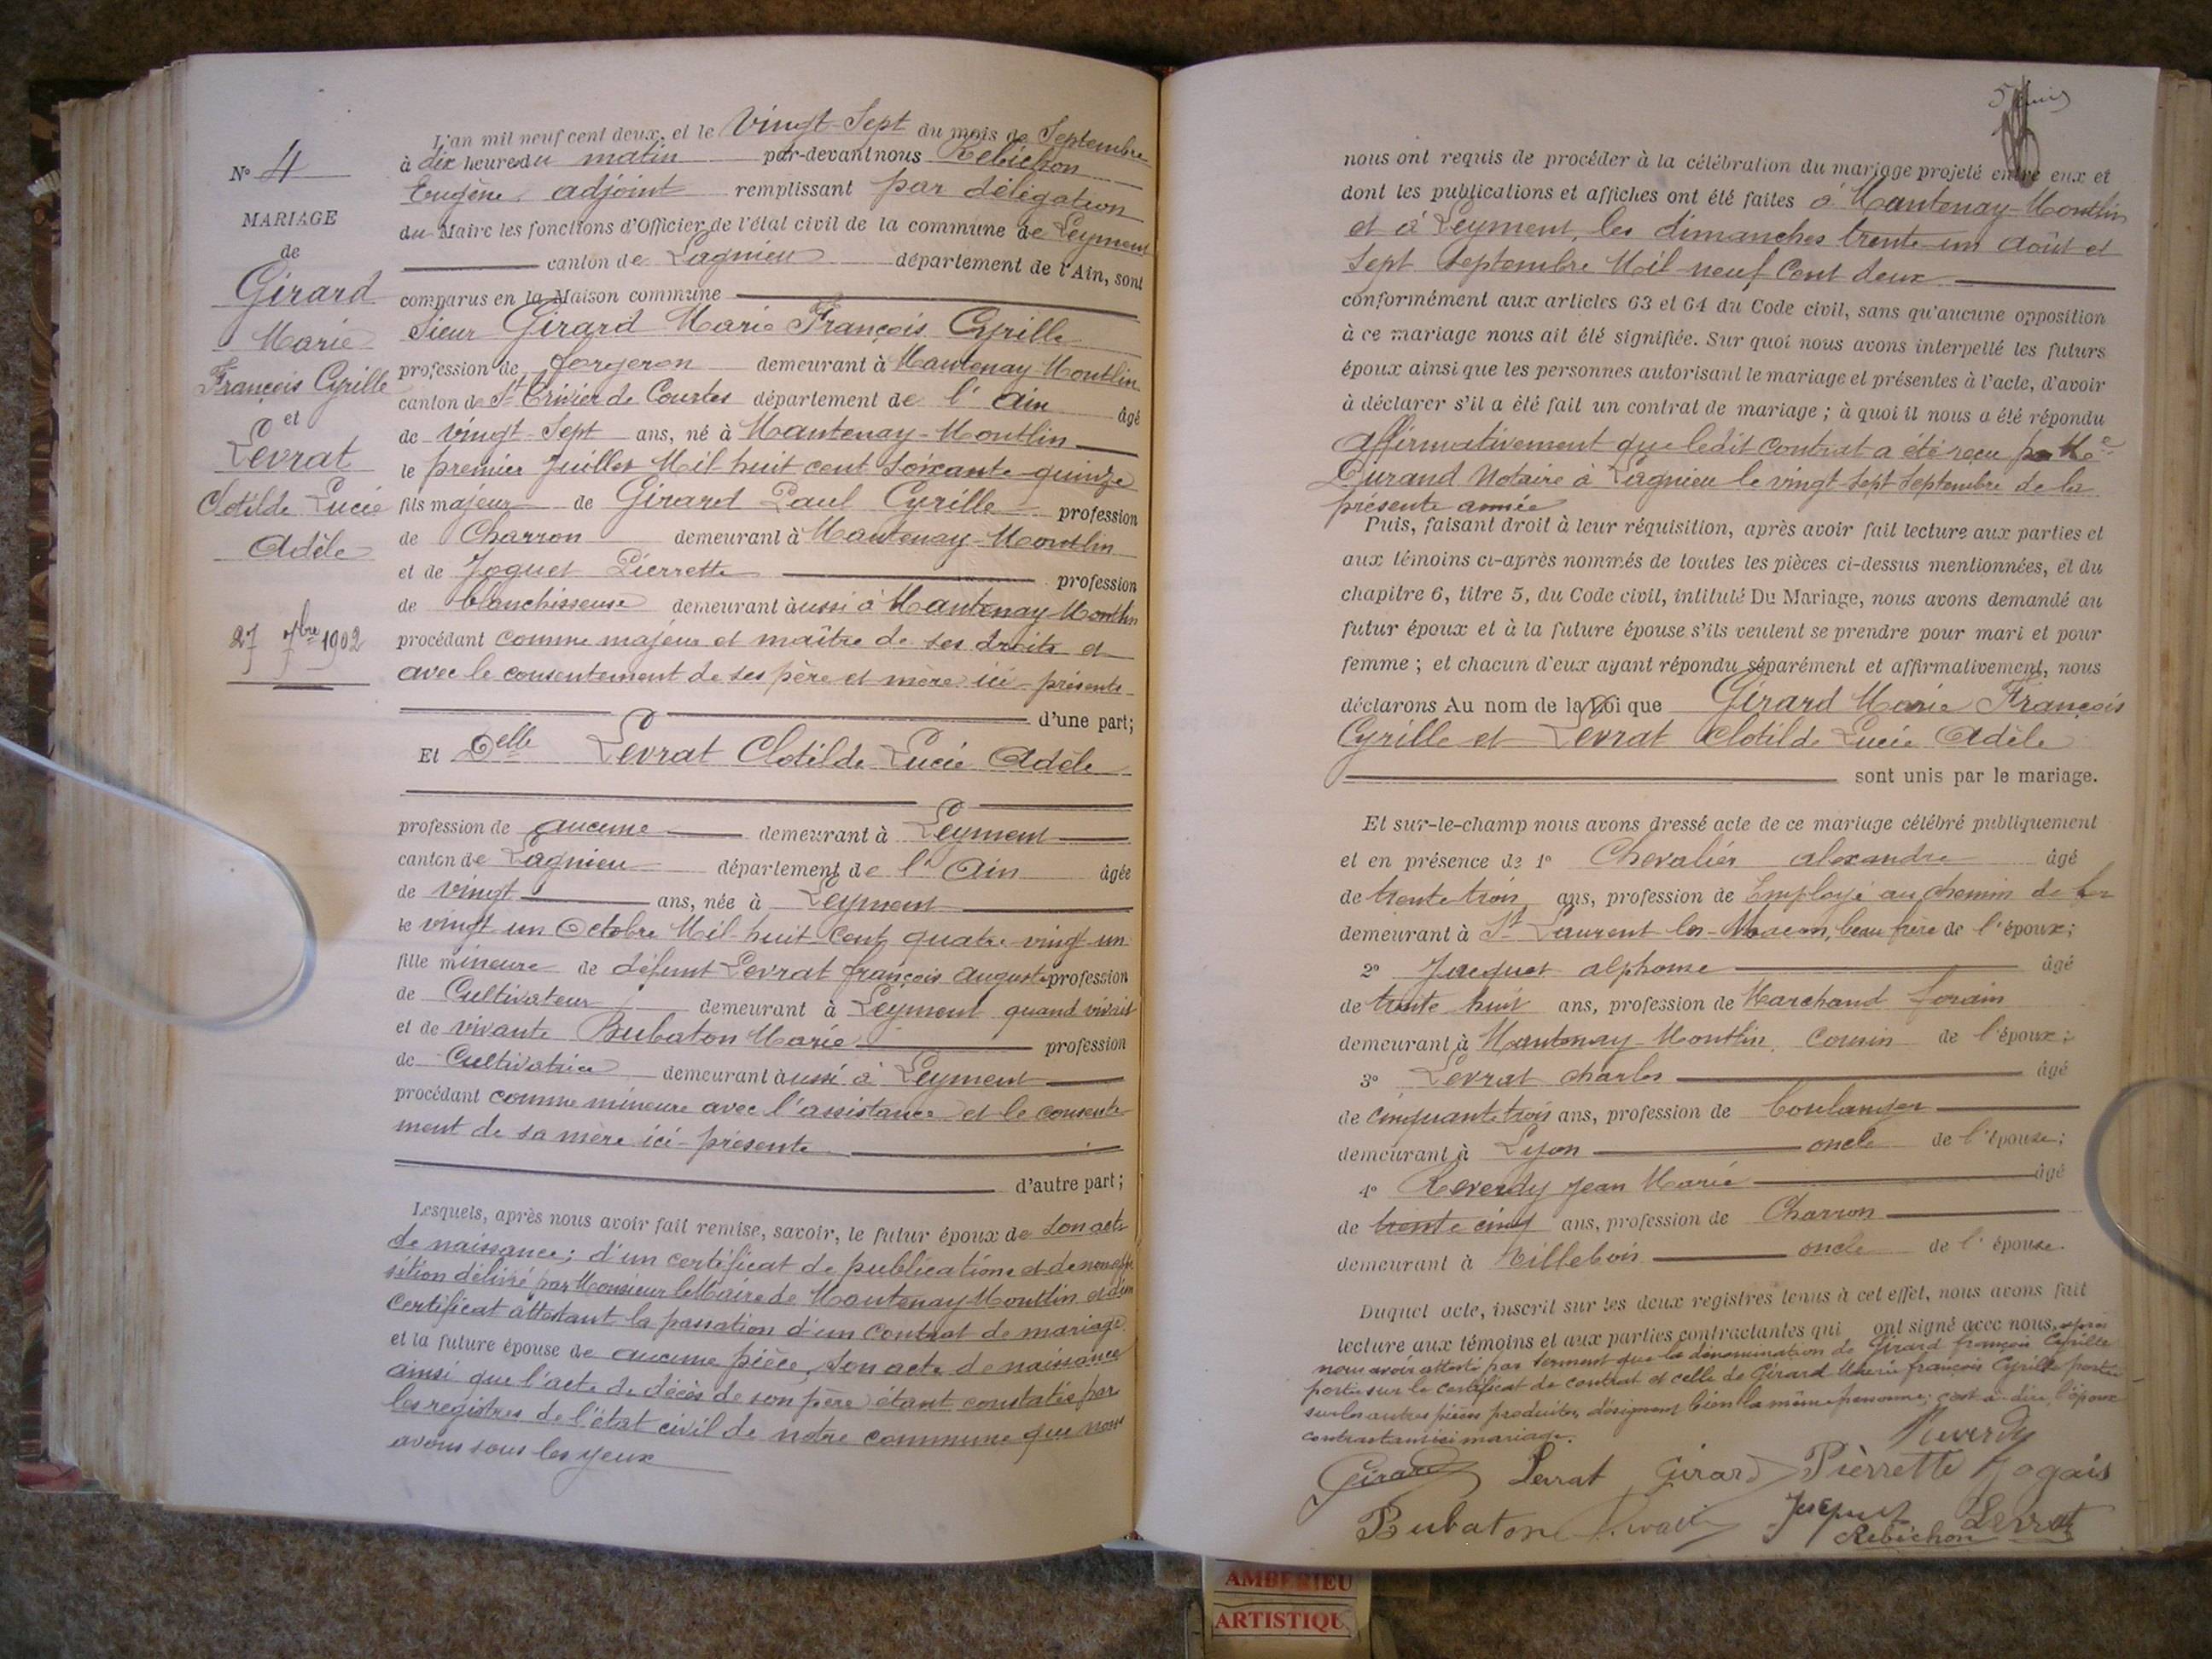 N° 4
MARIAGE
de
Girard
Marie
François Cyrille
et
Levrat
Clotilde Lucie
Adèle
27 7bre 1902
L'an mil neuf cent deux, et le Vingt-Sept du mois de Septembre
à dix heures du matin par-devant nous Rebichon
Eugène, adjoint remplissant par délégation
du Maire les fonctions d'Officier de l'état civil de la commune de Leyment
canton de Lagnieu département de l'Ain, sont
comparus en la Maison commune
Sieur Girard Marie François Cyrille
profession de forgeron demeurant à Mantenay-Montlin
canton de St Trivier de Courtes département de l'Ain âgé
de vingt-sept ans, né à Mantenay-Montlin
le premier Juillet Mil huit cent soixante-quinze
fils majeur de Girard Paul Cyrille profession
de Charron demeurant à Mantenay-Montlin
et de Joguet Pierrette profession
de blanchisseuse demeurant aussi à Mantenay-Montlin
procédant comme majeur et maître de ses droits et
avec le consentement de ses père et mère ici-présents
d'une part;
Et Delle Levrat Clotilde Lucie Adèle
profession de aucune demeurant à Leyment
canton de Lagnieu département de l'Ain âgée
de vingt ans, née à Leyment
le vingt un Octobre Mil huit cent quatre vingt-un
fille mineure de défunt Levrat françois auguste profession
de Cultivateur demeurant à Leyment quand vivait
et de vivante Bubaton Marie profession
de Cultivatrice demeurant aussi à Leyment
procédant comme mineure avec l'assistance et le consente-
ment de sa mère ici-présente
d'autre part;
Lesquels, après nous avoir fait remise, savoir, le futur époux de son acte
de naissance; d'un certificat de publications et de non oppo-
sition délivré par Monsieur le Maire de Mantenay-Montlin et d'un
certificat attestant la passation d'un contrat de mariage
et la future épouse de aucune pièce, son acte de naissance
ainsi que l'acte de décès de son père étant constatés par
les registres de l'état civil de notre commune que nous
avons sous les yeux
nous ont requis de procéder à la célébration du mariage projeté entre eux et
dont les publications et affiches ont été faites à Mantenay-Montlin
et à Leyment, les dimanches trente-un août et
sept septembre Mil neuf cent deux
conformément aux articles 63 et 64 du Code civil, sans qu'aucune opposition
à ce mariage nous ait été signifiée. Sur quoi nous avons interpellé les futurs
époux ainsi que les personnes autorisant le mariage et présentes à l'acte, d'avoir
à déclarer s'il a été fait un contrat de mariage; à quoi il nous a été répondu
affirmativement que ledit contrat a été reçu par Me
Durand Notaire à Lagnieu le vingt-sept septembre de la
présente année
Puis, faisant droit à leur réquisition, après avoir fait lecture aux parties et
aux témoins ci-après nommés de toutes les pièces ci-dessus mentionnées, et du
chapitre 6, titre 5, du Code civil, intitulé Du Mariage, nous avons demandé au
futur époux et à la future épouse s'ils veulent se prendre pour mari et pour
femme; et chacun d'eux ayant répondu séparément et affirmativement, nous
déclarons Au nom de la Loi que Girard Marie François
Cyrille et Levrat Clotilde Lucie Adèle
sont unis par le mariage.
Et sur-le-champ nous avons dressé acte de ce mariage célébré publiquement
et en présence de 1° Chevalier alexandre âgé
de trente trois ans, profession de Employé au chemin de fer
demeurant à St Laurent-les-Macon, beau frère de l'époux;
2° Jacquet alphonse âgé
de trente huit ans, profession de Marchand forain
demeurant à Mantenay-Montlin, cousin de l'époux;
3° Levrat charles âgé
de cinquante trois ans, profession de boulanger
demeurant à Lyon oncle de l'épouse;
4° Reverdy Jean Marie âgé
de trente cinq ans, profession de Charron
demeurant à Rillebois oncle de l'épouse.
Duquel acte, inscrit sur les deux registres tenus à cet effet, nous avons fait
lecture aux témoins et aux parties contractantes qui ont signé avec nous, après
nous avoir attesté par serment que la dénomination de Girard françois Cyrille
portée sur le certificat de contrat et celle de Girard Marie françois Cyrille portée
sur les autres pièces produites, désignent bien la même personne; c'est-à-dire l'époux
contractant ici mariage.
Reverdy
Girard Levrat Girard Pièrrette Jogais
Bubaton Jacquet Levrat
Rebichon
AMBERIEU
ARTISTIQU